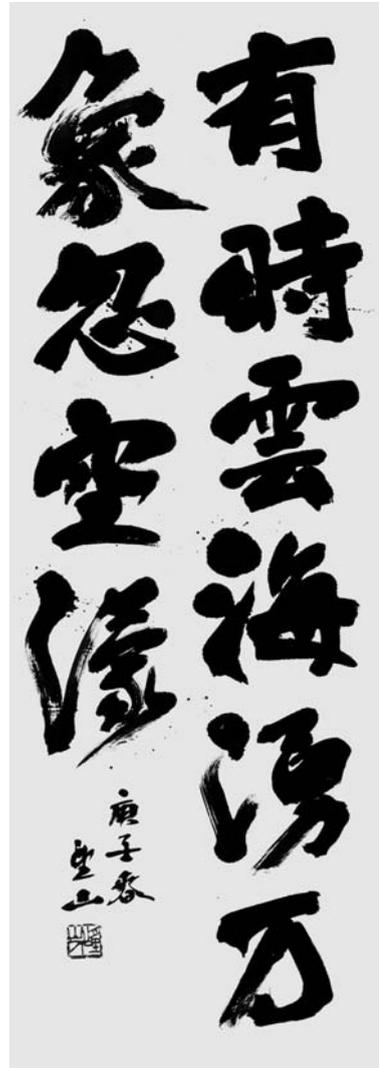 有時雲海湧万
象忽空濛
庚子春
聖山